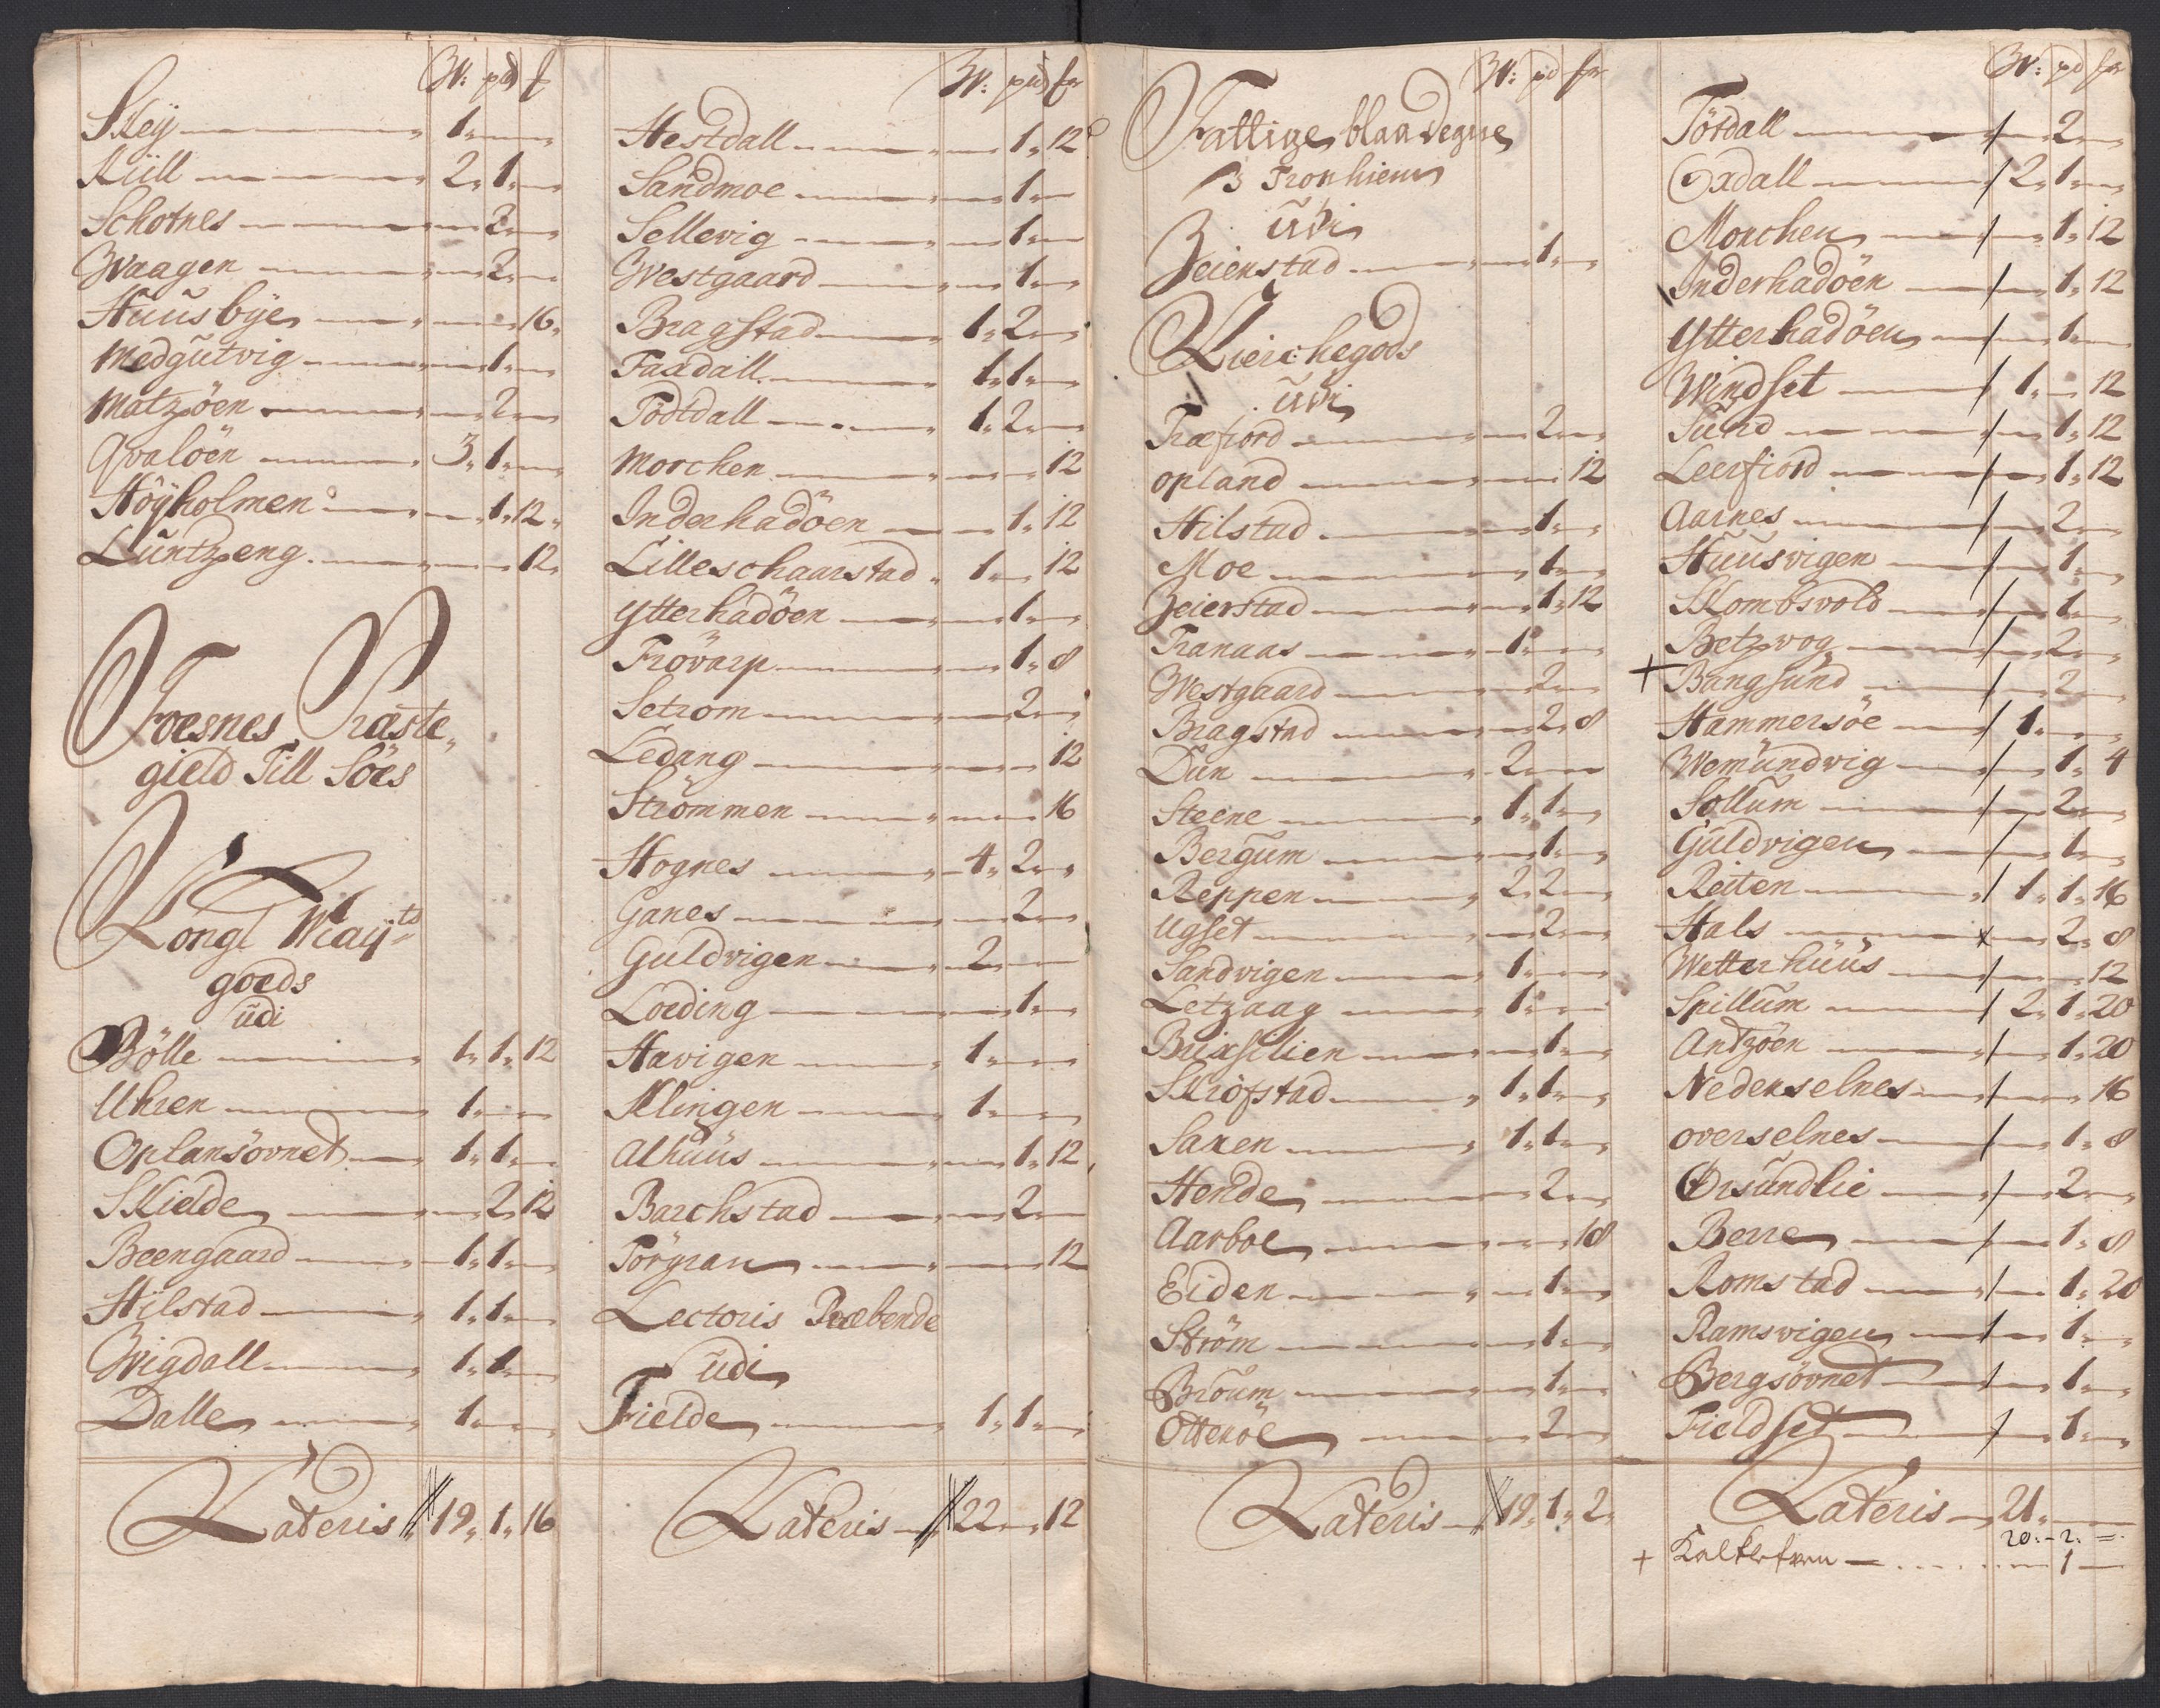 W: pd f
Skeÿ 1
Küll 2 1
Schotnes 2
Waagen 2
Huusbÿe 16
Medgutvig 1
Matzöen 2
Qvalöen 3 1
Höÿholmen 1 12
Luntzeng 12
Foesnes Præste
gield Till Söes
Kongl Mayts
goeds
udi
Bölle 1 1 12
Uhren 1
Oplansövnet 1 1
Skielde 2 12
Beengaard 1 1
Hilstad 1 1
Wigdall 1 1
Dalle 1
Lateris 19 1 16
W: pd f
Hestdall 1 12
Sandmoe 1
Sellevig 1
Westgaard 1
Bragstad 1 2
Faxdall 1 1
Tödtdall 1 2
Morchen 12
Inderhadöen 1 12
Lilleschaarstad 1 12
Ytterhadöen 1
Frövarp 1 8
Setrom 2
Ledang 12
Strömmen 16
Hognes 4 2
Ganes 2
Guldvigen 2
Loeding 1
Havigen 1
Klingen 1
Alhuus 1 12
Barchstad 2
Törgran 12
Lectoris Præbende
udi
Fielde 1 1
Lateris 22 12
W: pd f
Fattige blandegne
J Tronhiem
udi
Zeienstad 1
Kierchegods
udi
Træfiord 2
Opland 12
Hilstad 1
Moe 1
Zeierstad 1 12
Tranaas 1
Westgaard 2
Bragstad 2 8
Dun 2
Steene 1 1
Bergum 1
Reppen 2 2
Ugset 2
Sandvigen 1
Letzaag 1
Brixsilien 1
Skröfstad 1 1
Saxen 1 1
Hende 2
Aarboe 18
Eiden 1
Ström 1
Broum 1
Otteröe 2
Lateris 19 1 2
W: pd f
Tördall 2
Oxdall 2 1
Morchen 1 12
Inderhadöen 1 12
Ytterhadöen 1
Windset 1 12
Sund 1 12
Leerfiord 1 12
Aarnes 2
Huusvigen 1
Sklombsvold 1
Betzvog 2
+ Bangsund 2
Hammersöe 1
Wemundvig 1 4
Sollum 2
Guldvigen 1
Reiten 1 1 16
Hals 2 8
Wetterhuus 12
Spillum 2 1 20
Antzöen 1 20
Nederselnes 16
overselnes 1 8
Örsundlie 2
Berre 1 8
Romstad 1 20
Ramsvigen 1
Bergsövnet 1
Fieldset 1
Lateris 21
20 - 2 =
+ 1